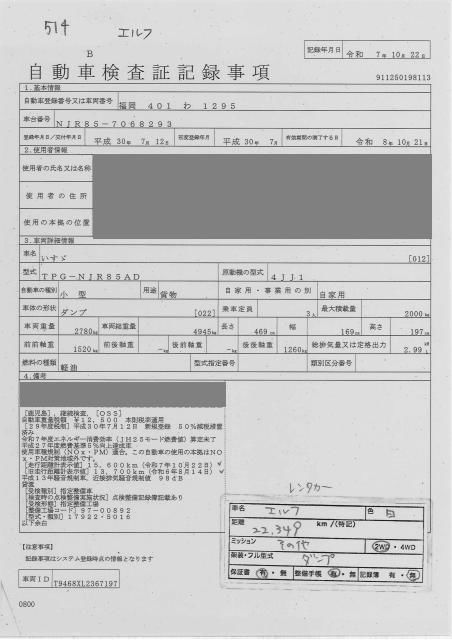 514 エルフ
B
記録年月日 令和 7年 10月 22日
自動車検査証記録事項
911250198113
1.基本情報
自動車登録番号又は車両番号 福岡 401 わ 1295
車台番号 NJR85-7068293
登録年月日/交付年月日 平成 30年 7月 12日 初度登録年月 平成 30年 7月 有効期間の満了する日 令和 8年 10月 21日
2.使用者情報
使用者の氏名又は名称
使用者の住所
使用の本拠の位置
3.車両詳細情報
車名 いすゞ [012]
型式 TPG-NJR85AD 原動機の型式 4JJ1
自動車の種別 小型 用途 貨物 自家用・事業用の別 自家用
車体の形状 ダンプ [022] 乗車定員 3人 最大積載量 2000kg
車両重量 2780kg 車両総重量 4945kg 長さ 469cm 幅 169cm 高さ 197cm
前前軸重 1520kg 前後軸重 -kg 後前軸重 -kg 後後軸重 1260kg 総排気量又は定格出力 2.99 kW L
燃料の種類 軽油 型式指定番号 類別区分番号
4.備考
[鹿児島],継続検査,[OSS]
自動車重量税額 ¥12,500 本則税率適用
[29年度税制]平成30年7月12日 新規登録 50%減税措置
済み
令和7年度エネルギー消費効率(JH25モード燃費値)算定未了
平成27年度燃費基準5%向上達成車
使用車種規制(NOx・PM)適合,この自動車の使用の本拠はNO
x・PM対策地域外です。
[走行距離計表示値]15,600km(令和7年10月22日)
[旧走行距離計表示値]13,700km(令和6年8月14日)
平成13年騒音規制車,近接排気騒音規制値 98dB
貸渡
[受検種別]指定整備車
[検査時の点検整備実施状況]点検整備記録簿記載あり
[受検形態]指定整備工場
[整備工場コード]97-00892
[型式・類別]17922-5016
以下余白
レンタカー
車名 エルフ 色 白
距離 22,349 km/(特記)
ミッション その他 2WD・4WD
架装・フル型式 ダンプ
保証書 有・無 整備手帳 有・無 記録簿 有・無
【注意事項】
記載事項はシステム登録時点の情報となります
車両ID T9468XL2367197
0800